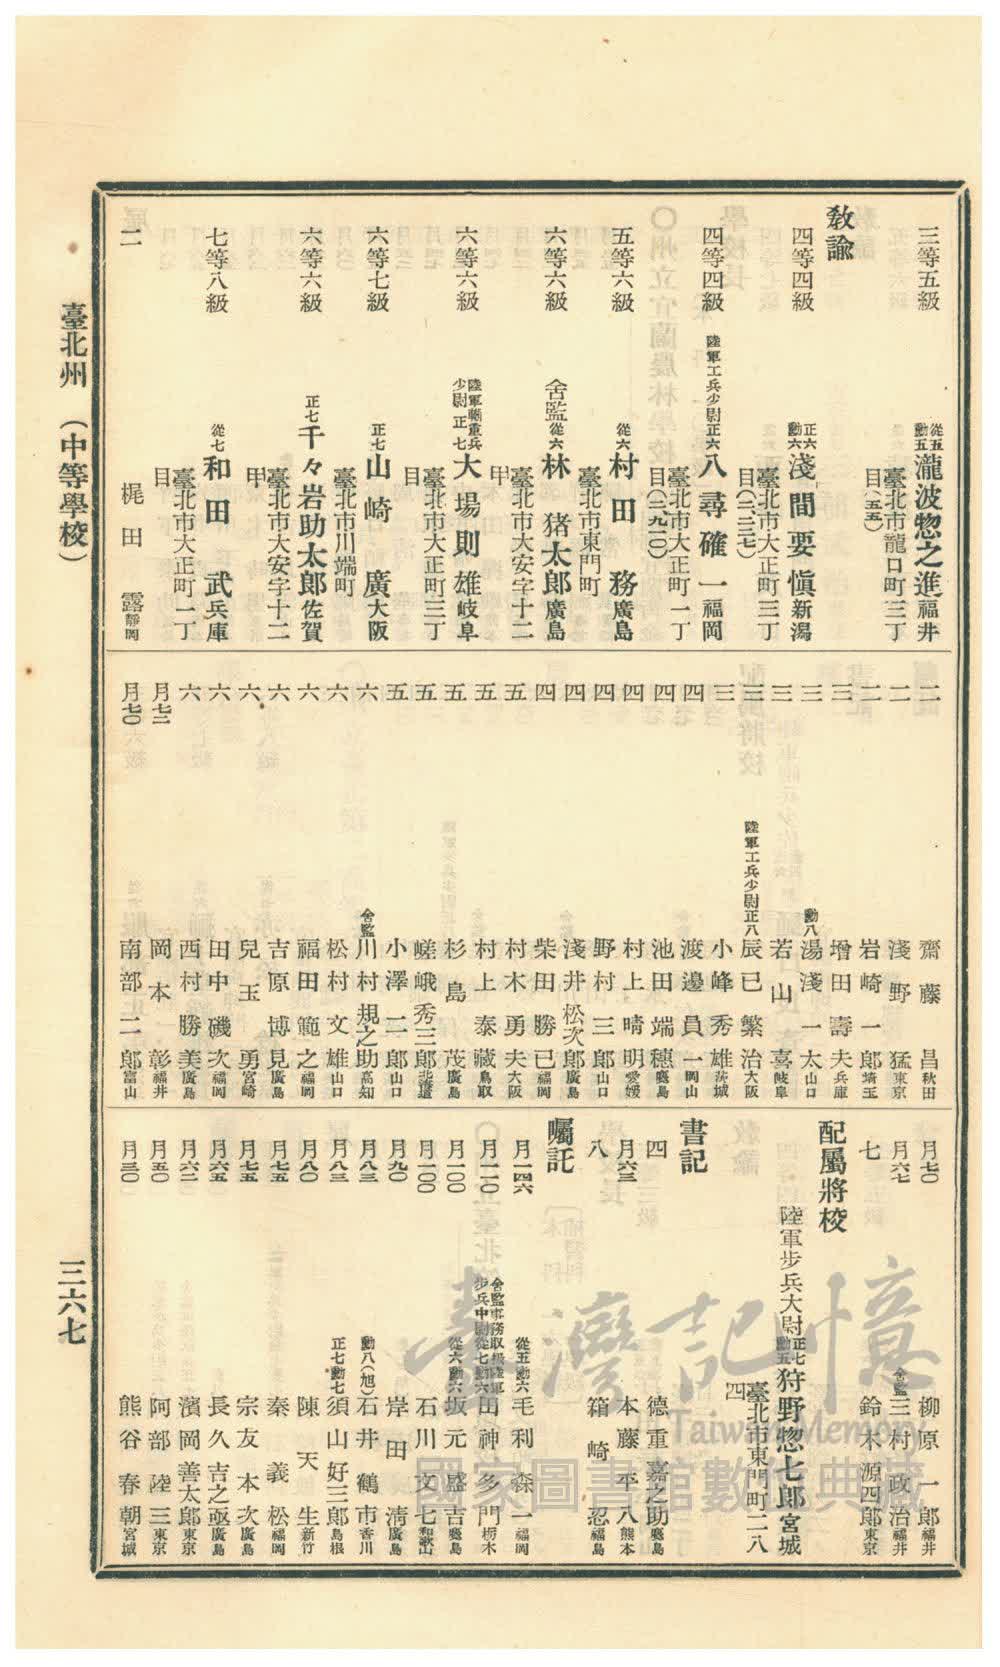 三等五級 從五勳五 瀧波惣之進 福井
臺北市龍口町三丁
目(五五)
教諭
四等四級 正六勳六 淺間要愼 新潟
臺北市大正町三丁
目(二、二三七)
四等四級 陸軍工兵少尉正六 八尋確一 福岡
臺北市大正町一丁
目(二、九二〇)
五等六級 從六 村田務 廣島
臺北市東門町
六等六級 舍監從六 林猪太郎 廣島
臺北市大安字十二
甲
六等六級 陸軍輜重兵少尉正七 大場則雄 岐阜
臺北市大正町三丁
目
六等七級 正七 山崎廣 大阪
臺北市川端町
六等六級 正七 千々岩助太郎 佐賀
臺北市大安字十二
甲
七等八級 從七 和田武 兵庫
臺北市大正町一丁
目
二 梶田露 靜岡
二 齋藤昌 秋田
二 淺野猛 東京
二 岩崎一郎 埼玉
三 增田壽夫 兵庫
三 勳八 湯淺一太 山口
三 若山喜 岐阜
三 陸軍工兵少尉正八 辰已繁治 大阪
三 小峰秀雄 茨城
四 渡邊員一 岡山
四 池田端穗 廣島
四 村上晴明 愛媛
四 野村三郎 山口
四 淺井松次郎 廣島
四 柴田勝已 福岡
五 村木勇夫 大阪
五 村上泰藏 鳥取
五 杉島茂 廣島
五 嵯峨秀三郎 北海道
五 小澤二郎 山口
六 舍監 川村規之助 高知
六 松村文雄 山口
六 福田範之 福岡
六 吉原博見 廣島
六 兒玉勇 宮崎
六 田中磯次 福岡
六 西村勝美 廣島
月七二 岡本彰 福井
月七〇 南部二郎 富山
月七〇 柳原一郎 福井
月六七 舍監 三村政治 福井
七 鈴木源四郎 東京
配屬將校
陸軍步兵大尉 正七勳五 狩野惣七郎 宮城
臺北市東門町二八
四
書記
四 德重嘉之助 廣島
月六三 本藤平八 熊本
八 箱崎忍 福島
囑託
月一四六 從五勳六 毛利森一 福岡
月一一〇 舍監事務取扱陸軍步兵中尉從七勳六 田神多門 栃木
月一〇〇 從六勳六 坂元盛吉 廣島
月一〇〇 石川文七 和歌山
月九〇 岸田淸 廣島
月八三 勳八(旭) 石井鶴市 香川
月八三 正七勳七 須山好三郎 島根
月八〇 陳天生 新竹
月七五 秦義松 福岡
月七五 宗友本次 廣島
月六五 長久吉之亟 廣島
月六二 濱岡善太郎 東京
月五〇 阿部陸三 東京
月三〇 熊谷春朝 宮城
臺北州 (中等學校)
三六七
臺灣記憶
Taiwan Memory
國家圖書館數位典藏